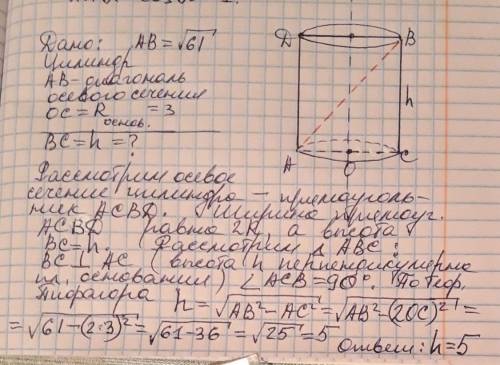 Дано: AB = √61
Цилиндр
AB - диагональ
осевого сечения
OC = R основ. = 3
BC = h = ?
D B
h
A O C
Рассмотрим осевое
сечение цилиндра – прямоуголь-
ник ACBD. Ширина прямоуг.
ACBD равна 2R, а высота
BC = h. Рассмотрим △ ABC:
BC ⊥ AC (высота h перпендикулярна
пл. основания) ∠ACB = 90°. По теор.
Пифагора h = √AB² - AC² = √AB² - (2OC)² =
= √61 - (2·3)² = √61 - 36 = √25 = 5
Ответ: h = 5